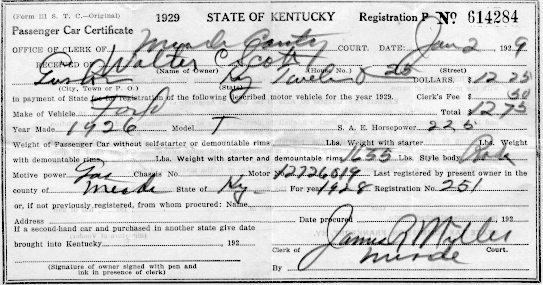 (Form III S. T. C.—Original) 1929 STATE OF KENTUCKY Registration P No 614284
Passenger Car Certificate
OFFICE OF CLERK OF Meade County COURT. DATE: Jan 2 1929
RECEIVED OF Walter C Scott
(Name of Owner) (House No.) (Street)
Ky Twelve 25 DOLLARS, $ 12 25
(City, Town or P. O.) (State)
in payment of State fee for registration of the following described motor vehicle for the year 1929. Clerk's Fee $ 50
Make of Vehicle Ford Total $ 12 75
Year Made 1926 Model T S. A. E. Horsepower 22 5
Weight of Passenger Car without self-starter or demountable rims Lbs. Weight with starter Lbs. Weight
with demountable rims Lbs. Weight with starter and demountable rims 1655 Lbs. Style body
Motive power Gas Chassis No Motor No 12726019 Last registered by present owner in the
county of Meade State of Ky For year 1928 Registration No. 251
or, if not previously registered, from whom procured: Name
Address Date procured 192
If a second-hand car and purchased in another state give date
brought into Kentucky 192 James R Miller
Clerk of Meade Court.
(Signature of owner signed with pen and
ink in presence of clerk) By